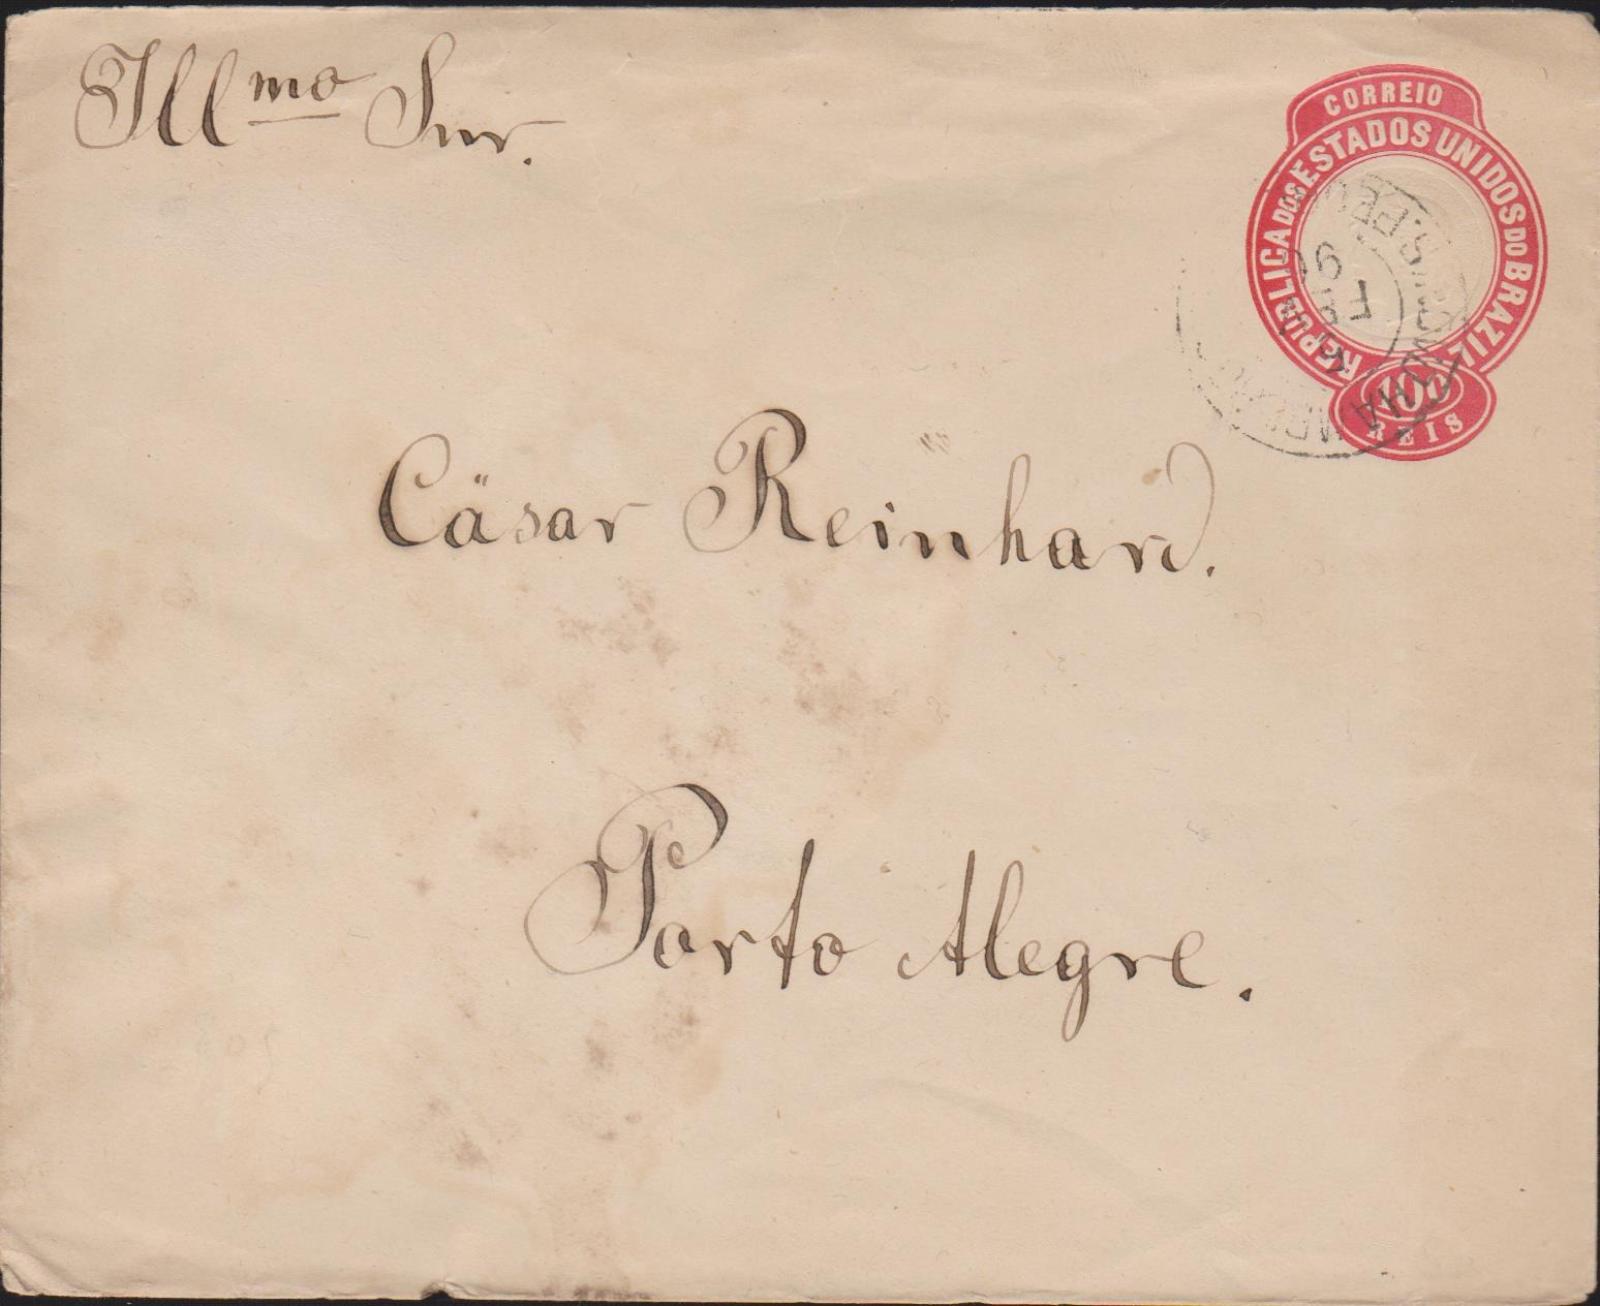 Illmo Snr.
CORREIO
REPUBLICA DOS ESTADOS UNIDOS DO BRAZIL
100
REIS
Cäsar Reinhard.
Porto Alegre.